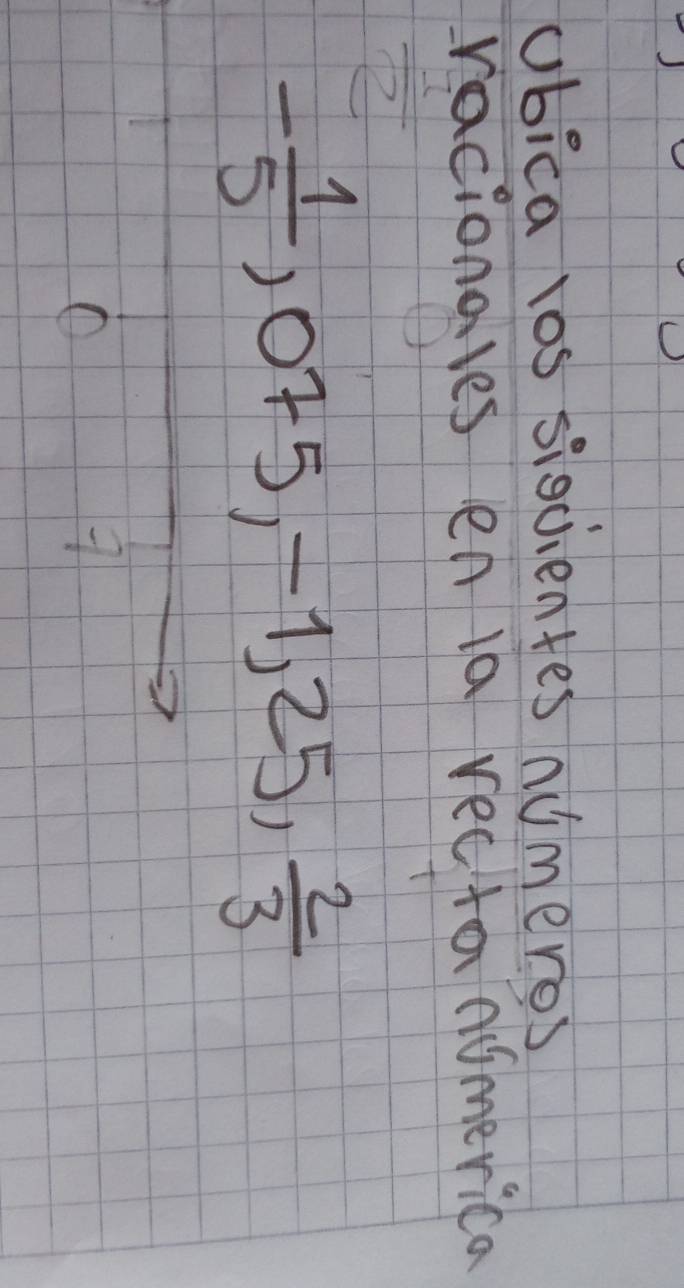 Ubica los siguientes números
racionales en la recta númerica
-1/5, 075, -1,25, 2/3
0 1